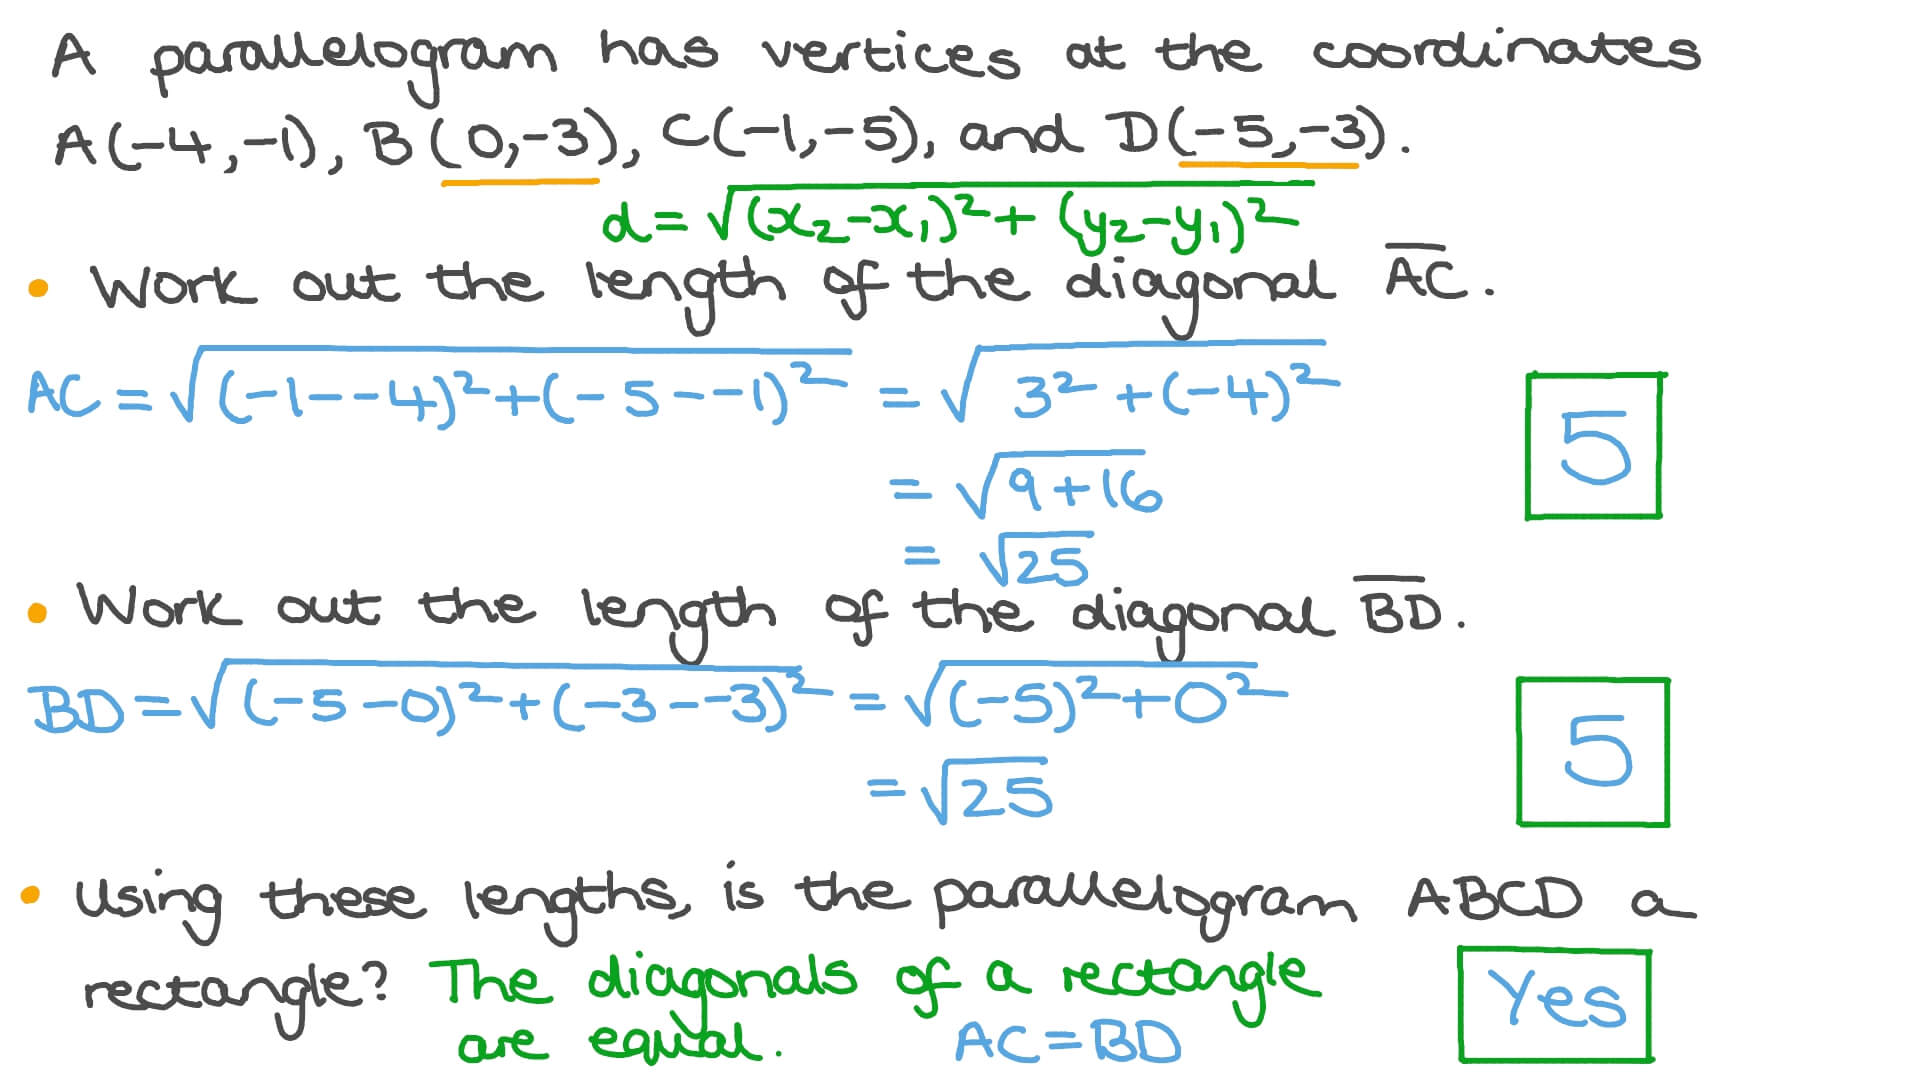 A parallelogram has vertices at the coordinates
A(-4,-1), B(0,-3), C(-1,-5), and D(-5,-3).
d=√(x₂-x₁)²+(y₂-y₁)²
• Work out the length of the diagonal A̅C̅.
AC=√(-1--4)²+(-5--1)² = √3²+(-4)²
5
= √9+16
= √25
• Work out the length of the diagonal B̅D̅.
BD=√(-5-0)²+(-3--3)² = √(-5)²+0²
5
=√25
• Using these lengths, is the parallelogram ABCD a
rectangle? The diagonals of a rectangle
are equal. AC=BD
Yes